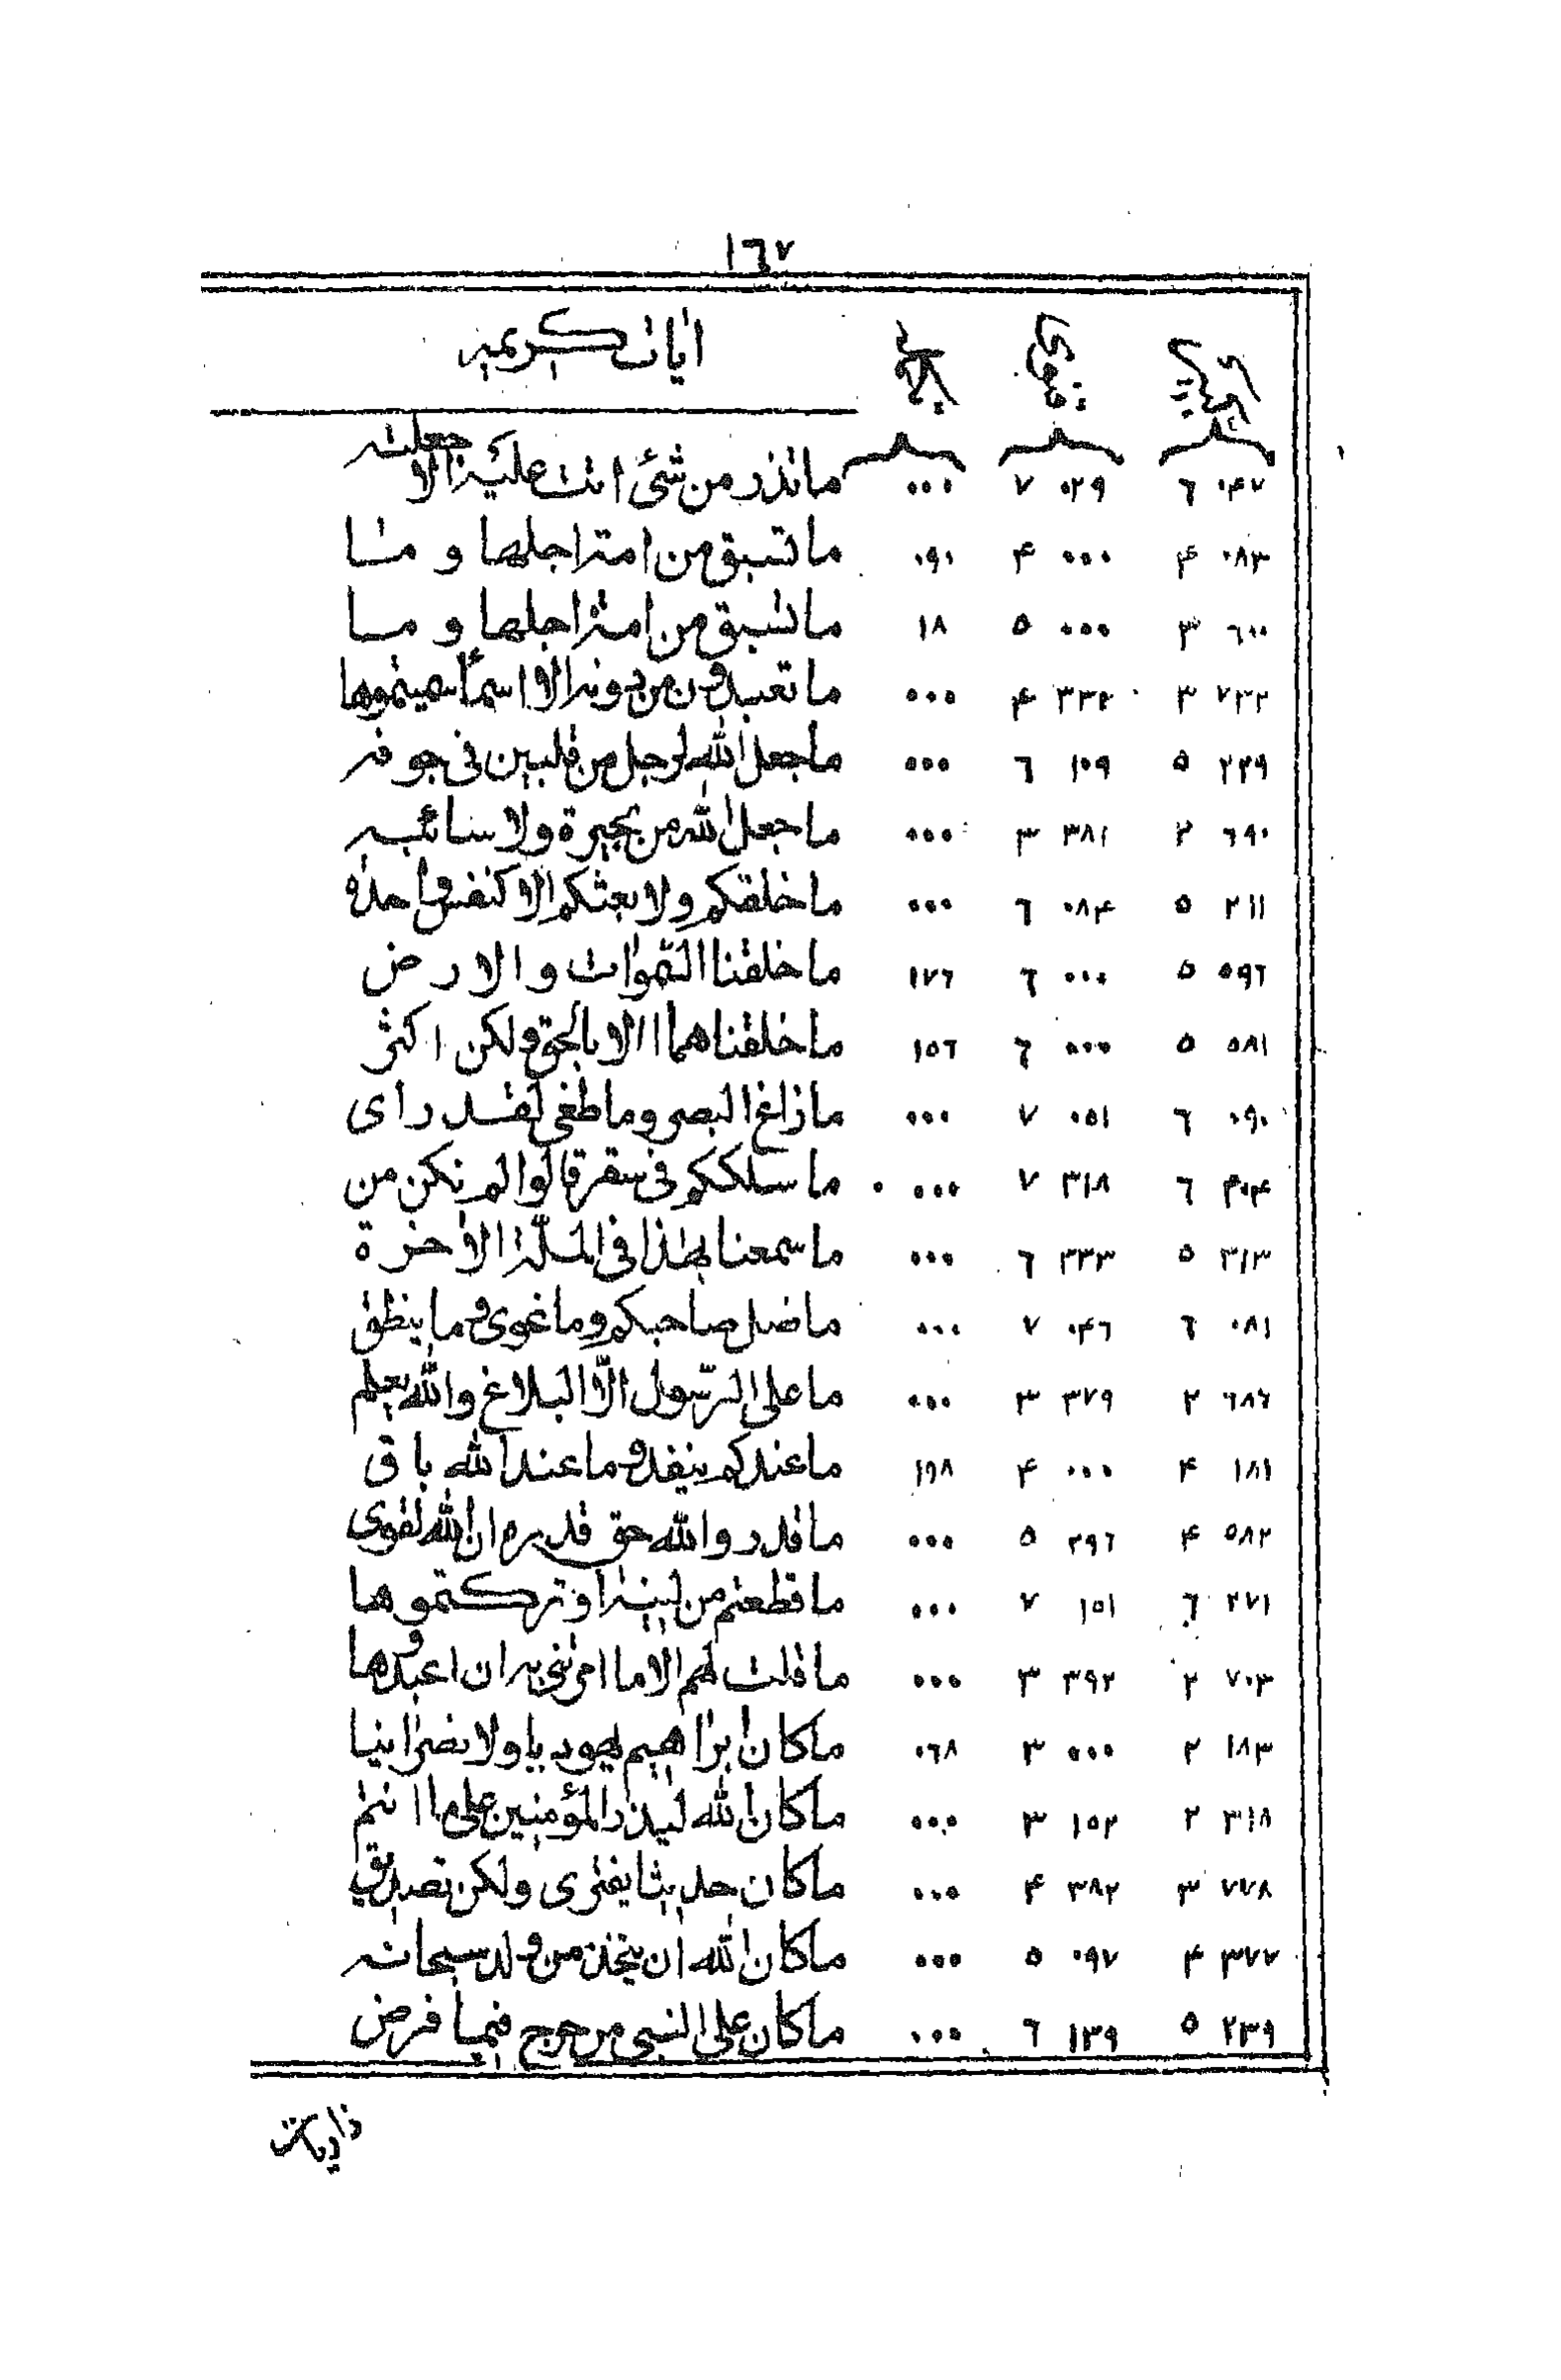 ١٦٧
اٰيات كريمه
٠٤٧ ٦ ٠٢٩ ٧ ٠٠٠ ما تذر من شئ اتت عليه الا جعلته
٠٨٣ ٤ ٠٠٠ ٤ ٠٩٠ ما تسبق من امة اجلها و ما
٦٠٠ ٣ ٠٠٠ ٥ ١٨ ما تسبق من امة اجلها و ما
٧٣٢ ٣ ٣٣٢ ٤ ٠٠٠ ما تعبدون من دونه الا اسمآء سميتموها
٢٢٩ ٥ ١٠٩ ٦ ٠٠٠ ما جعل الله لرجل من قلبين فى جوفه
٦٩٠ ٢ ٣٨١ ٣ ٠٠٠ ما جعل الله من بحيرة ولا سائبه
٢١١ ٥ ٠٨٤ ٦ ٠٠٠ ما خلقكم ولا بعثكم الا كنفس واحده
٥٩٦ ٥ ٠٠٠ ٦ ١٧٦ ما خلقنا السّموات و الارض
٥٨١ ٥ ٠٠٠ ٦ ١٥٦ ما خلقناهما الا بالحق ولكن اكثر
٠٩٠ ٦ ٠٥١ ٧ ٠٠٠ ما زاغ البصر وما طغى لقد راى
٣٠٤ ٦ ٣١٨ ٧ ٠٠٠ ما سلككم فى سقر قالوا لم نكن من
٣١٣ ٥ ٢٣٣ ٦ ٠٠٠ ما سمعنا بهذا فى الملّة الاخرة
٠٨١ ٦ ٠٤٦ ٧ ٠٠٠ ما ضل صاحبكم وما غوى وما ينطق
٦٨٦ ٢ ٣٧٩ ٣ ٠٠٠ ما على الرّسول الّا البلاغ والله يعلم
١٨١ ٤ ٠٠٠ ٤ ١٩٨ ما عندكم ينفد وما عند الله باق
٥٨٢ ٤ ٢٩٦ ٥ ٠٠٠ ما قدروا الله حق قدره ان الله لقوى
٢٧١ ٦ ١٥١ ٧ ٠٠٠ ما قطعتم من لينة او تركتموها
٧٠٣ ٢ ٣٩٢ ٣ ٠٠٠ ما قلت لهم الا ما امرتنى به ان اعبدوها
١٨٣ ٢ ٠٠٠ ٣ ٠٦٨ ما كان ابراهيم يهوديا ولا نصرانيا
٣١٨ ٢ ١٥٢ ٣ ٠٠٠ ما كان الله ليذر المؤمنين على ما انتم
٧٧٨ ٣ ٣٨٢ ٤ ٠٠٠ ما كان حديثا يفترى ولكن تصديق
٣٧٧ ٤ ٠٩٧ ٥ ٠٠٠ ما كان لله ان يتخذ من ولد سبحانه
٢٣٩ ٥ ١٣٩ ٦ ٠٠٠ ما كان على النبى من حرج فيما فرض